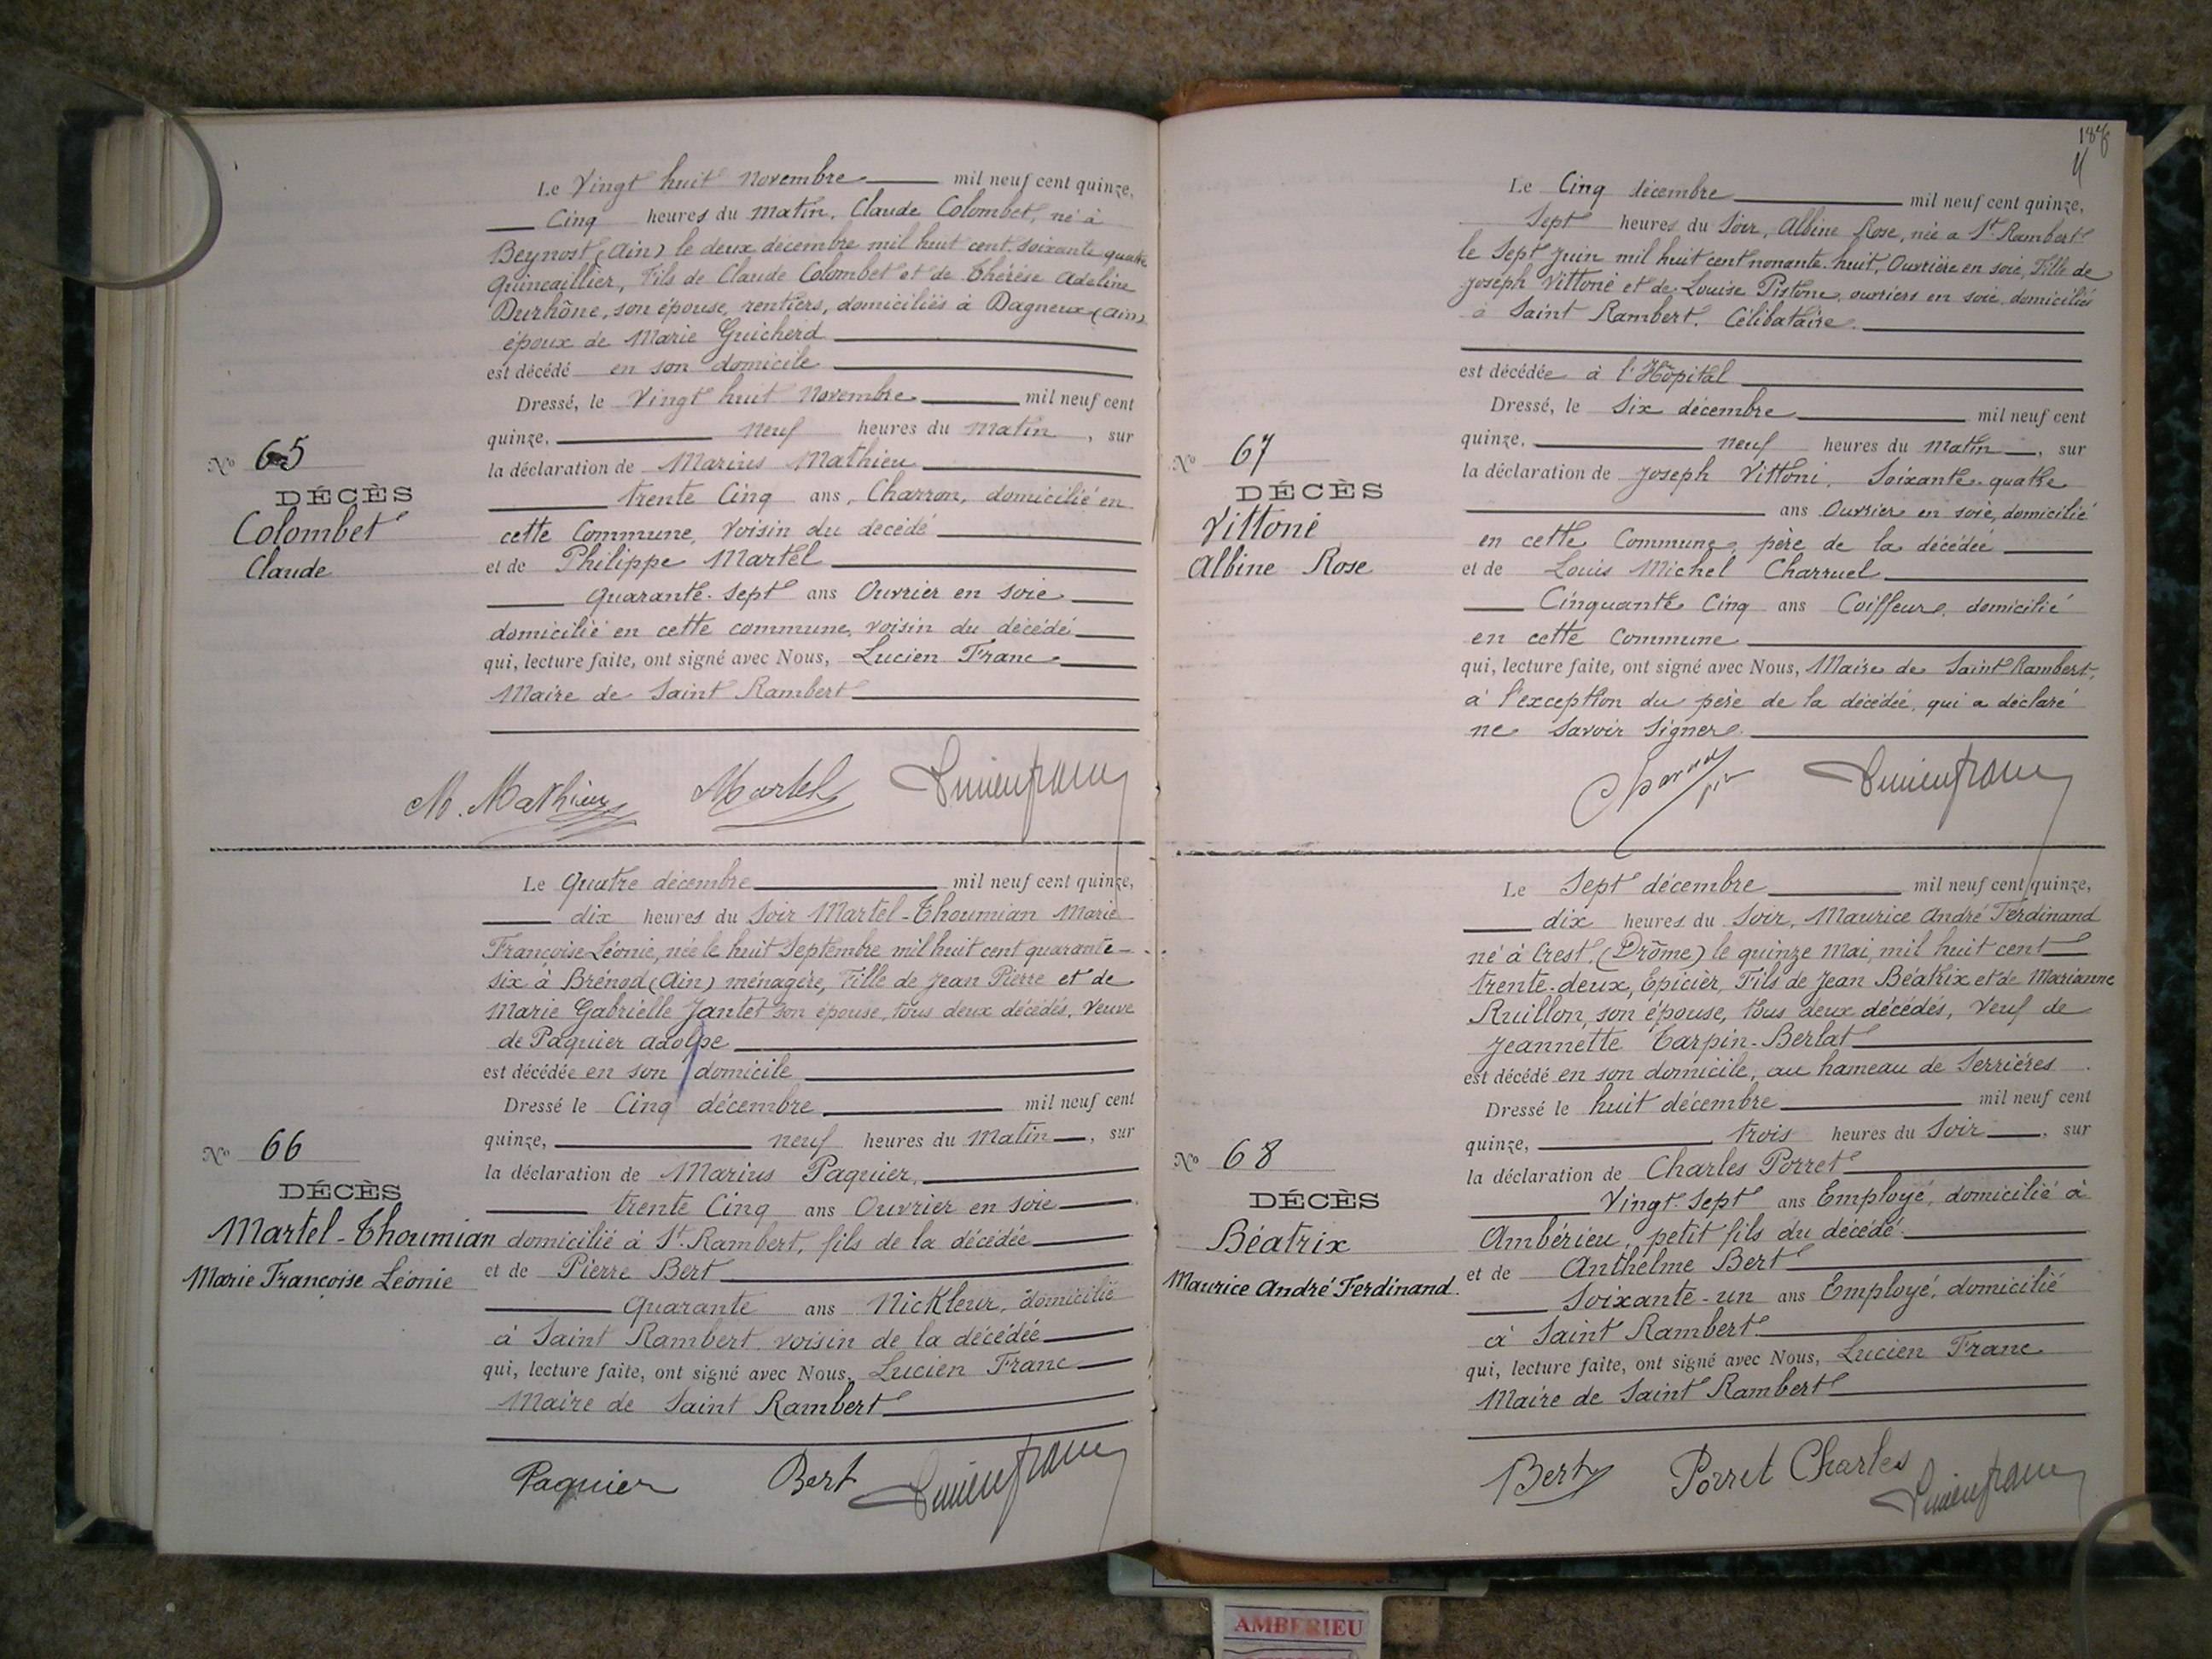 Le Vingt huit Novembre mil neuf cent quinze,
Cinq heures du Matin, Claude Colombet, né à
Beynost (Ain) le deux décembre mil huit cent soixante quatre
Quincaillier, Fils de Claude Colombet et de Thérèse Adeline
Durhône, son épouse, rentiers, domiciliés à Dagneux (Ain)
époux de Marie Guicherd
est décédé en son domicile
Dressé, le Vingt huit Novembre mil neuf cent
quinze, neuf heures du Matin, sur
la déclaration de Marius Mathieu
trente Cinq ans, Charron, domicilié en
cette Commune, voisin du décédé
et de Philippe Martel
Quarante-sept ans Ouvrier en soie
domicilié en cette commune, voisin du décédé
qui, lecture faite, ont signé avec Nous, Lucien Franc
Maire de Saint Rambert
No 65
DÉCÈS
Colombet
Claude
M. Mathieu Martel Lucien franc
Le Quatre décembre mil neuf cent quinze,
dix heures du Soir Martel-Thoumian Marie
Françoise Léonie, née le huit Septembre mil huit cent quarante-
six à Brénod (Ain) ménagère, Fille de Jean Pierre et de
Marie Gabrielle Jantet son épouse, tous deux décédés, Veuve
de Paquier adolpe
est décédée en son domicile
Dressé le Cinq décembre mil neuf cent
quinze, neuf heures du Matin, sur
la déclaration de Marius Paquier,
trente Cinq ans Ouvrier en soie
domicilié à St. Rambert, fils de la décédée
et de Pierre Bert
Quarante ans Nickleur, domicilié
à Saint Rambert voisin de la décédée
qui, lecture faite, ont signé avec Nous, Lucien Franc
Maire de Saint Rambert
No 66
DÉCÈS
Martel-Thoumian
Marie Françoise Léonie
Paquier Bert Lucien franc
Le Cinq décembre mil neuf cent quinze,
Sept heures du Soir, Albine Rose, née à St. Rambert
le Sept Juin mil huit cent nonante-huit, Ouvrière en soie, Fille de
Joseph Vittoni et de Louise Pistone, ouvriers en soie domiciliés
à Saint Rambert. Célibataire.
est décédée à l'Hôpital
Dressé, le Six décembre mil neuf cent
quinze, neuf heures du Matin, sur
la déclaration de Joseph Vittoni, Soixante-quatre
ans Ouvrier en soie, domicilié
en cette Commune, père de la décédée
et de Louis Michel Charruel
Cinquante Cinq ans Coiffeur, domicilié
en cette Commune
qui, lecture faite, ont signé avec Nous, Maire de Saint Rambert,
à l'exception du père de la décédée, qui a déclaré
ne savoir signer.
No 67
DÉCÈS
Vittoni
Albine Rose
Lucien franc
Le Sept décembre mil neuf cent quinze,
dix heures du Soir, Maurice André Ferdinand
né à Crest (Drôme) le quinze Mai, mil huit cent
trente-deux, Epicier, Fils de Jean Béatrix et de Marianne
Ruillon, son épouse, tous deux décédés, Veuf de
Jeannette Tarpin-Berlat
est décédé en son domicile, au hameau de Serrières.
Dressé le huit décembre mil neuf cent
quinze, trois heures du Soir, sur
la déclaration de Charles Porret
Vingt-Sept ans Employé, domicilié à
Ambérieu, petit fils du décédé.
et de Anthelme Bert
Soixante-un ans Employé, domicilié
à Saint Rambert.
qui, lecture faite, ont signé avec Nous, Lucien Franc
Maire de Saint Rambert
No 68
DÉCÈS
Béatrix
Maurice André Ferdinand.
Bert Porret Charles Lucien franc
AMBERIEU